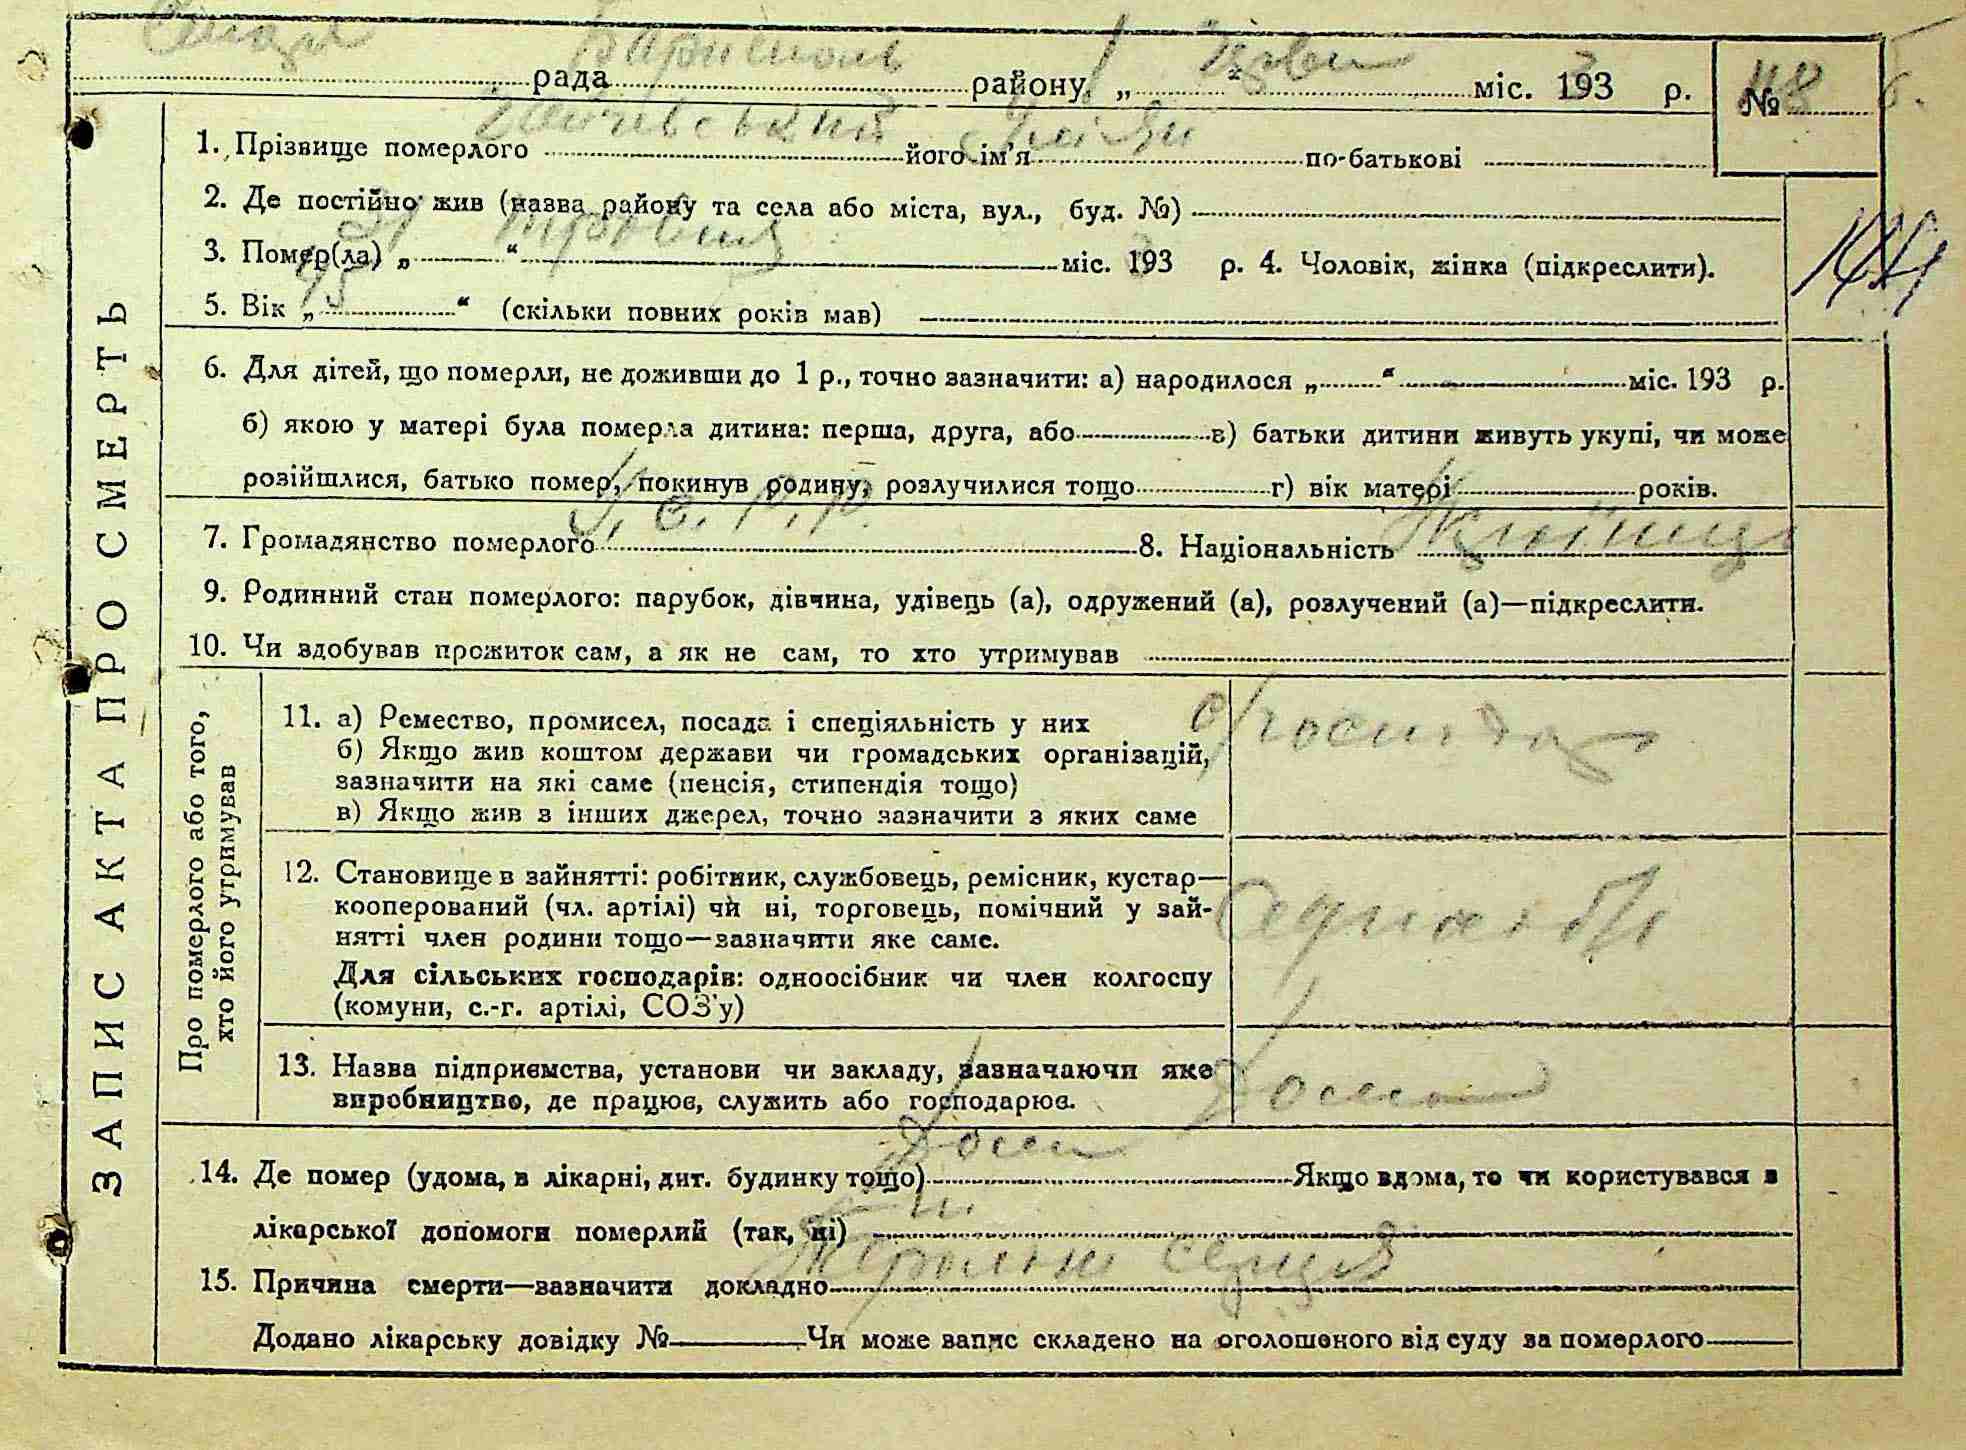 Бориспіль
рада района, „ " червн міс. 1933 р. № 118
1. Прізвище померлого його ім'я по-батькові
2. Де постійно жив (назва району та села або міста, вул., буд. №)
3. Помер(ла) „ 31 " травня міс. 193 р. 4. Чоловік, жінка (підкреслити).
5. Вік „ 45 " (скільки повних років мав)
6. Для дітей, що померли, не доживши до 1 р., точно зазначити: а) народилося „ " міс. 193 р.
б) якою у матері була померла дитина: перша, друга, або в) батьки дитини живуть укупі, чи може
розійшлися, батько помер, покинув родину, розлучилися тощо г) вік матері років.
7. Громадянство померлого У.С.Р.Р. 8. Національність Українець
9. Родинний стан померлого: парубок, дівчина, удівець (а), одружений (а), розлучений (а)—підкреслити.
10. Чи здобував прожиток сам, а як не сам, то хто утримував
ЗАПИС АКТА ПРО СМЕРТЬ
Про померлого або того,
хто його утримував
11. а) Ремество, промисел, посада і спеціяльність у них
б) Якщо жив коштом держави чи громадських організацій,
зазначити на які саме (пенсія, стипендія тощо)
в) Якщо жив з інших джерел, точно зазначити з яких саме
12. Становище в зайнятті: робітник, службовець, ремісник, кустар—
кооперований (чл. артілі) чи ні, торговець, помічний у зай-
нятті член родини тощо—зазначити яке саме.
Для сільських господарів: одноосібник чи член колгоспу
(комуни, с.-г. артілі, СОЗ'у)
13. Назва підприємства, установи чи закладу, зазначаючи яке
виробництво, де працює, служить або господарює.
14. Де помер (удома, в лікарні, дит. будинку тощо) Дома Якщо вдома, то чи користувався з
лікарської допомоги померлий (так, ні)
15. Причина смерти—зазначити докладно серця
Додано лікарську довідку № Чи може запис складено на оголошеного від суду за померлого